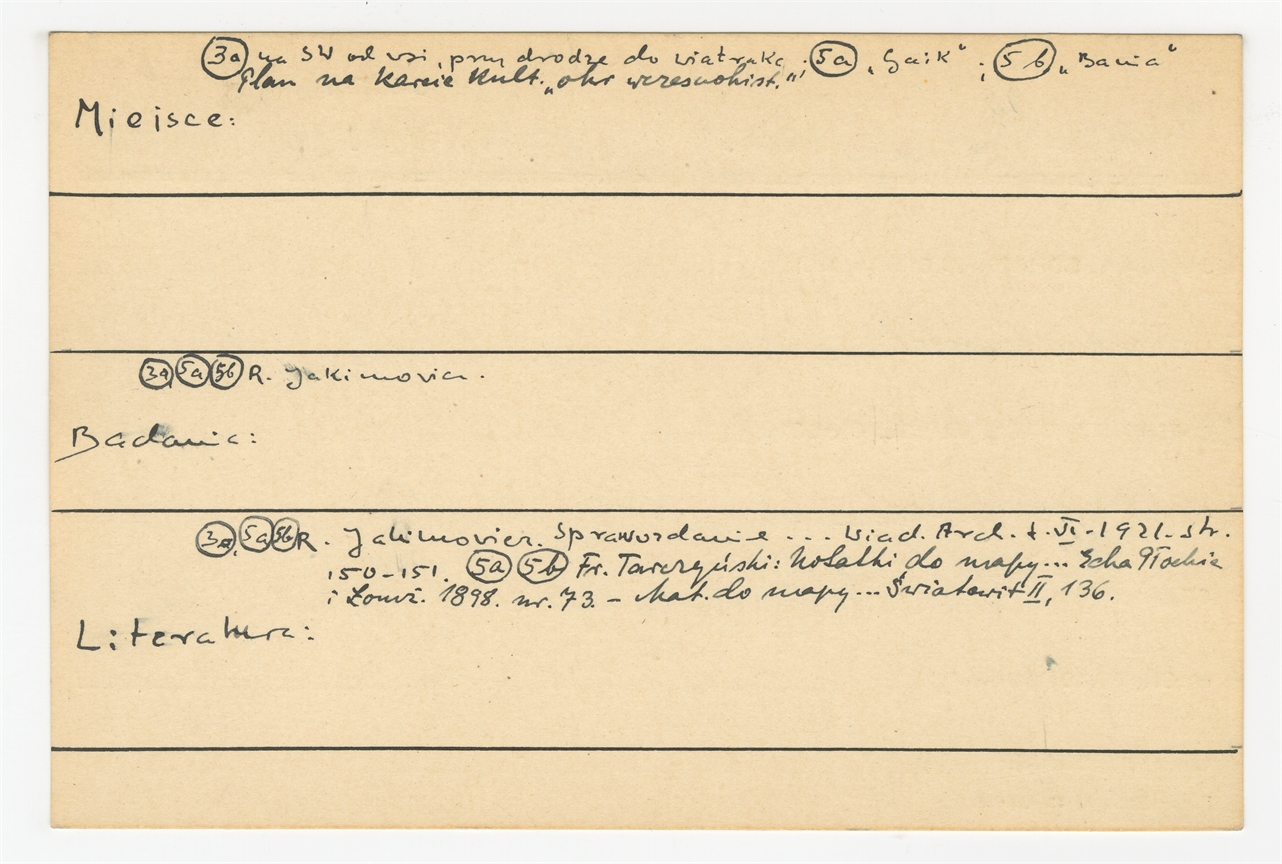 3a na SW od wsi, przy drodze do wiatraka; 5a „Gaik"; 5b „Bania"
Plan na karcie Kult. „okr wczesnohist."
Miejsce:
3a, 5a 5b R. Jakimowicz.
Badania:
3a, 5a 5b R. Jakimowicz. Sprawozdanie ... Wiad. Arch. t. VI - 1921. str.
150-151. 5a 5b Fr. Tarczyński: Notatki do mapy... Echa Płockie
i Łomż. 1898. nr. 73. - Mat. do mapy... Światowit II, 136.
Literatura: